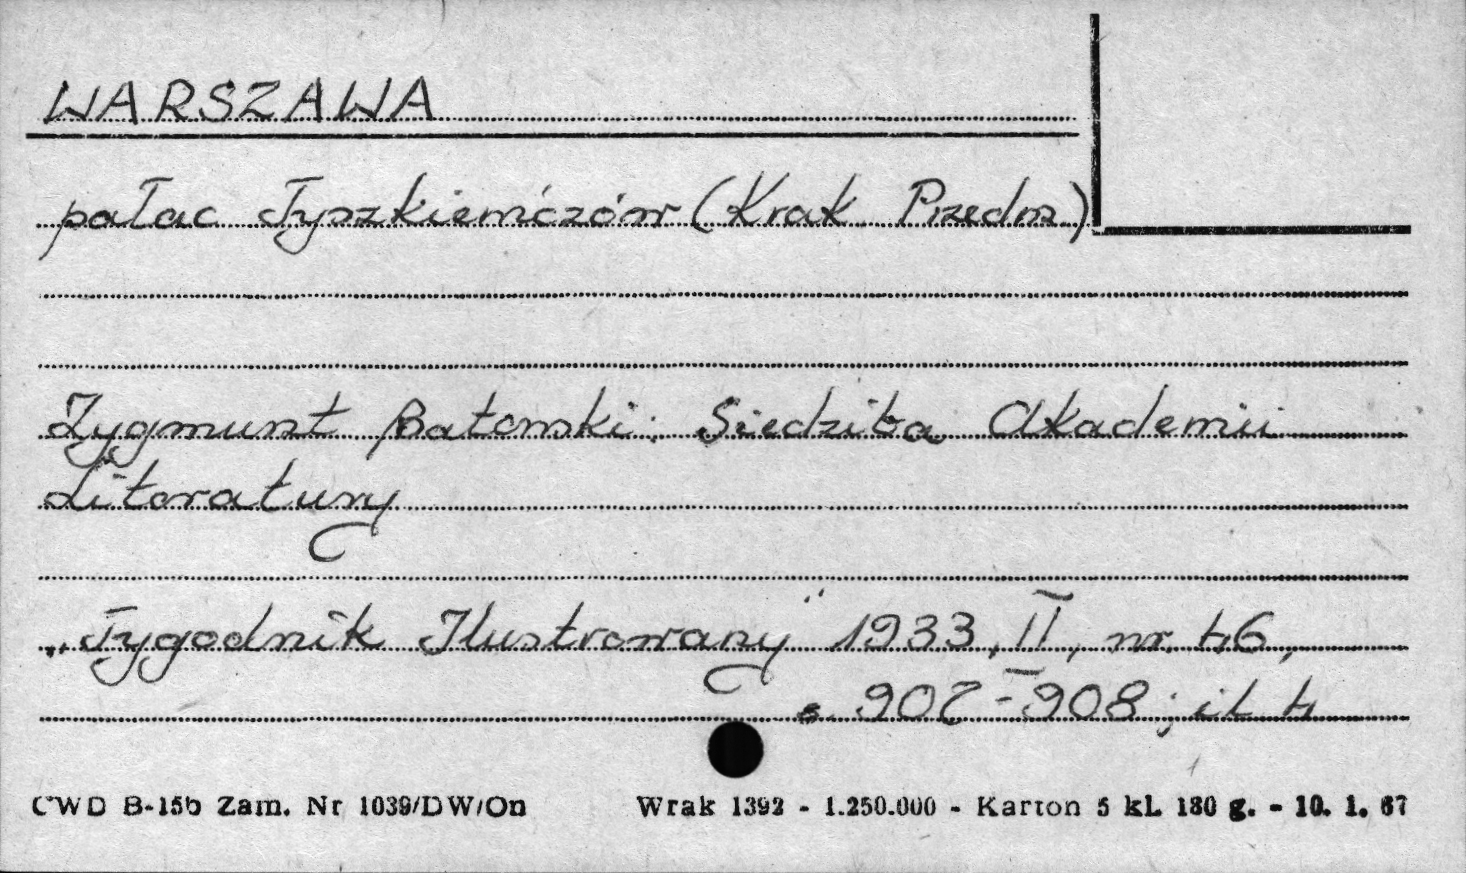 WARSZAWA
pałac Tyszkiewiczów (Krak Przedm)
Zygmunt Batowski: Siedziba Akademii
Literatury
„Tygodnik Ilustrowany" 1933, II, nr. 46,
s. 907-908; il. 4
CWD B-15b Zam. Nr 1039/DW/On Wrak 1392 - 1.250.000 - Karton 5 kl. 180 g. - 10. 1. 67